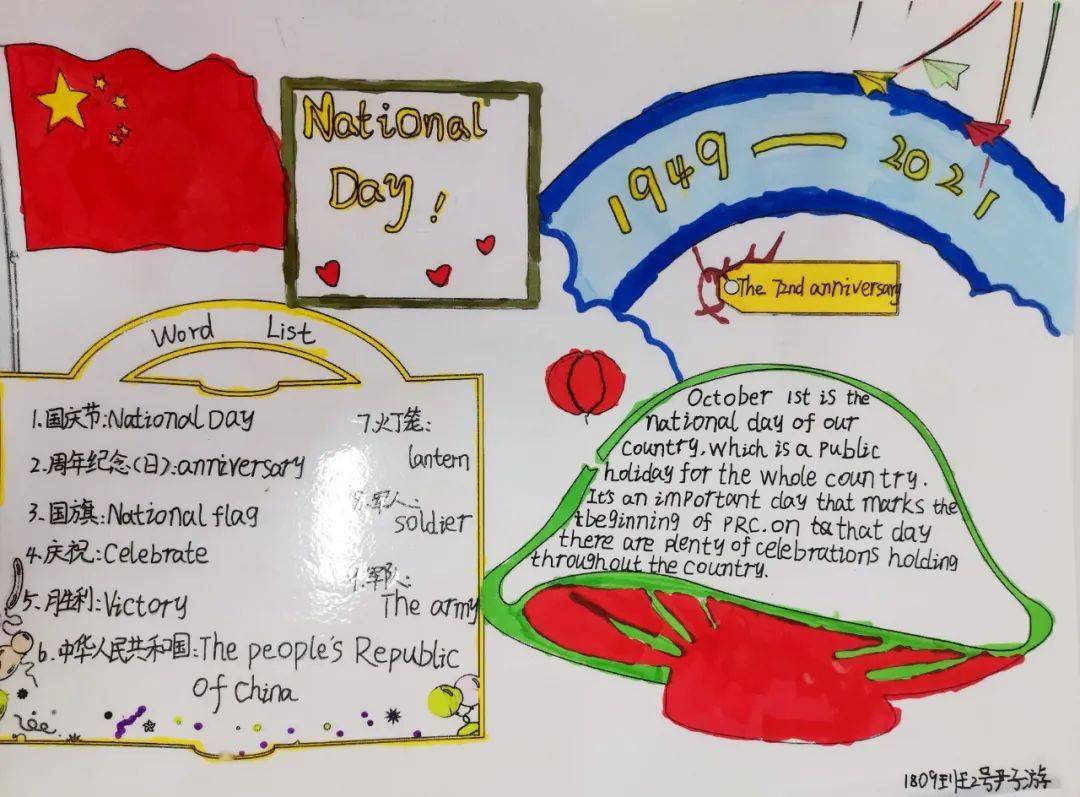 National
Day!
1949—2021
The 72nd anniversary
Word List
1.国庆节:National Day
2.周年纪念(日):anniversary
3.国旗:National flag
4.庆祝:Celebrate
5.胜利:Victory
6.中华人民共和国:The people's Republic
Of China
7.灯笼:
lantern
8.军人:
soldier
9.军队:
The army
October 1st is the
national day of our
country, which is a public
holiday for the whole country.
It's an important day that marks the
beginning of PRC. on that day
there are plenty of celebrations holding
throughout the country.
1809班2号尹子游